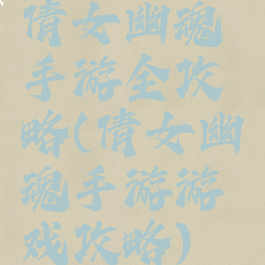 倩女幽魂
手游全攻
略(倩女幽
魂手游游
戏攻略)